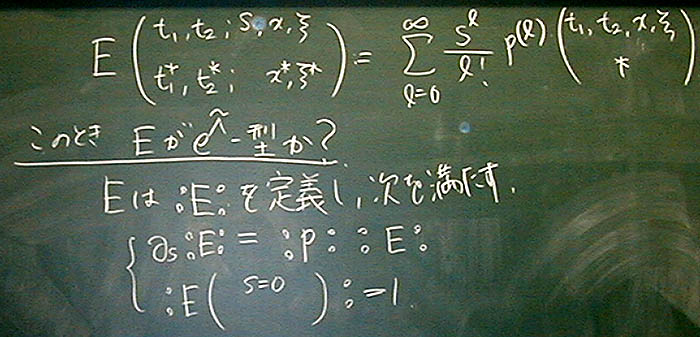 E(t₁, t₂; s, x, ξ / t₁*, t₂*; x*, ξ*) = Σ_{ℓ=0}^{∞} s^ℓ/ℓ! p^{(ℓ)}(t₁, t₂, x, ξ / *)
このとき Eがe^Λ̃-型か?
Eは :E: を定義し, 次を満たす.
{ ∂s :E: = :p: :E:
:E( s=0 ): =1.